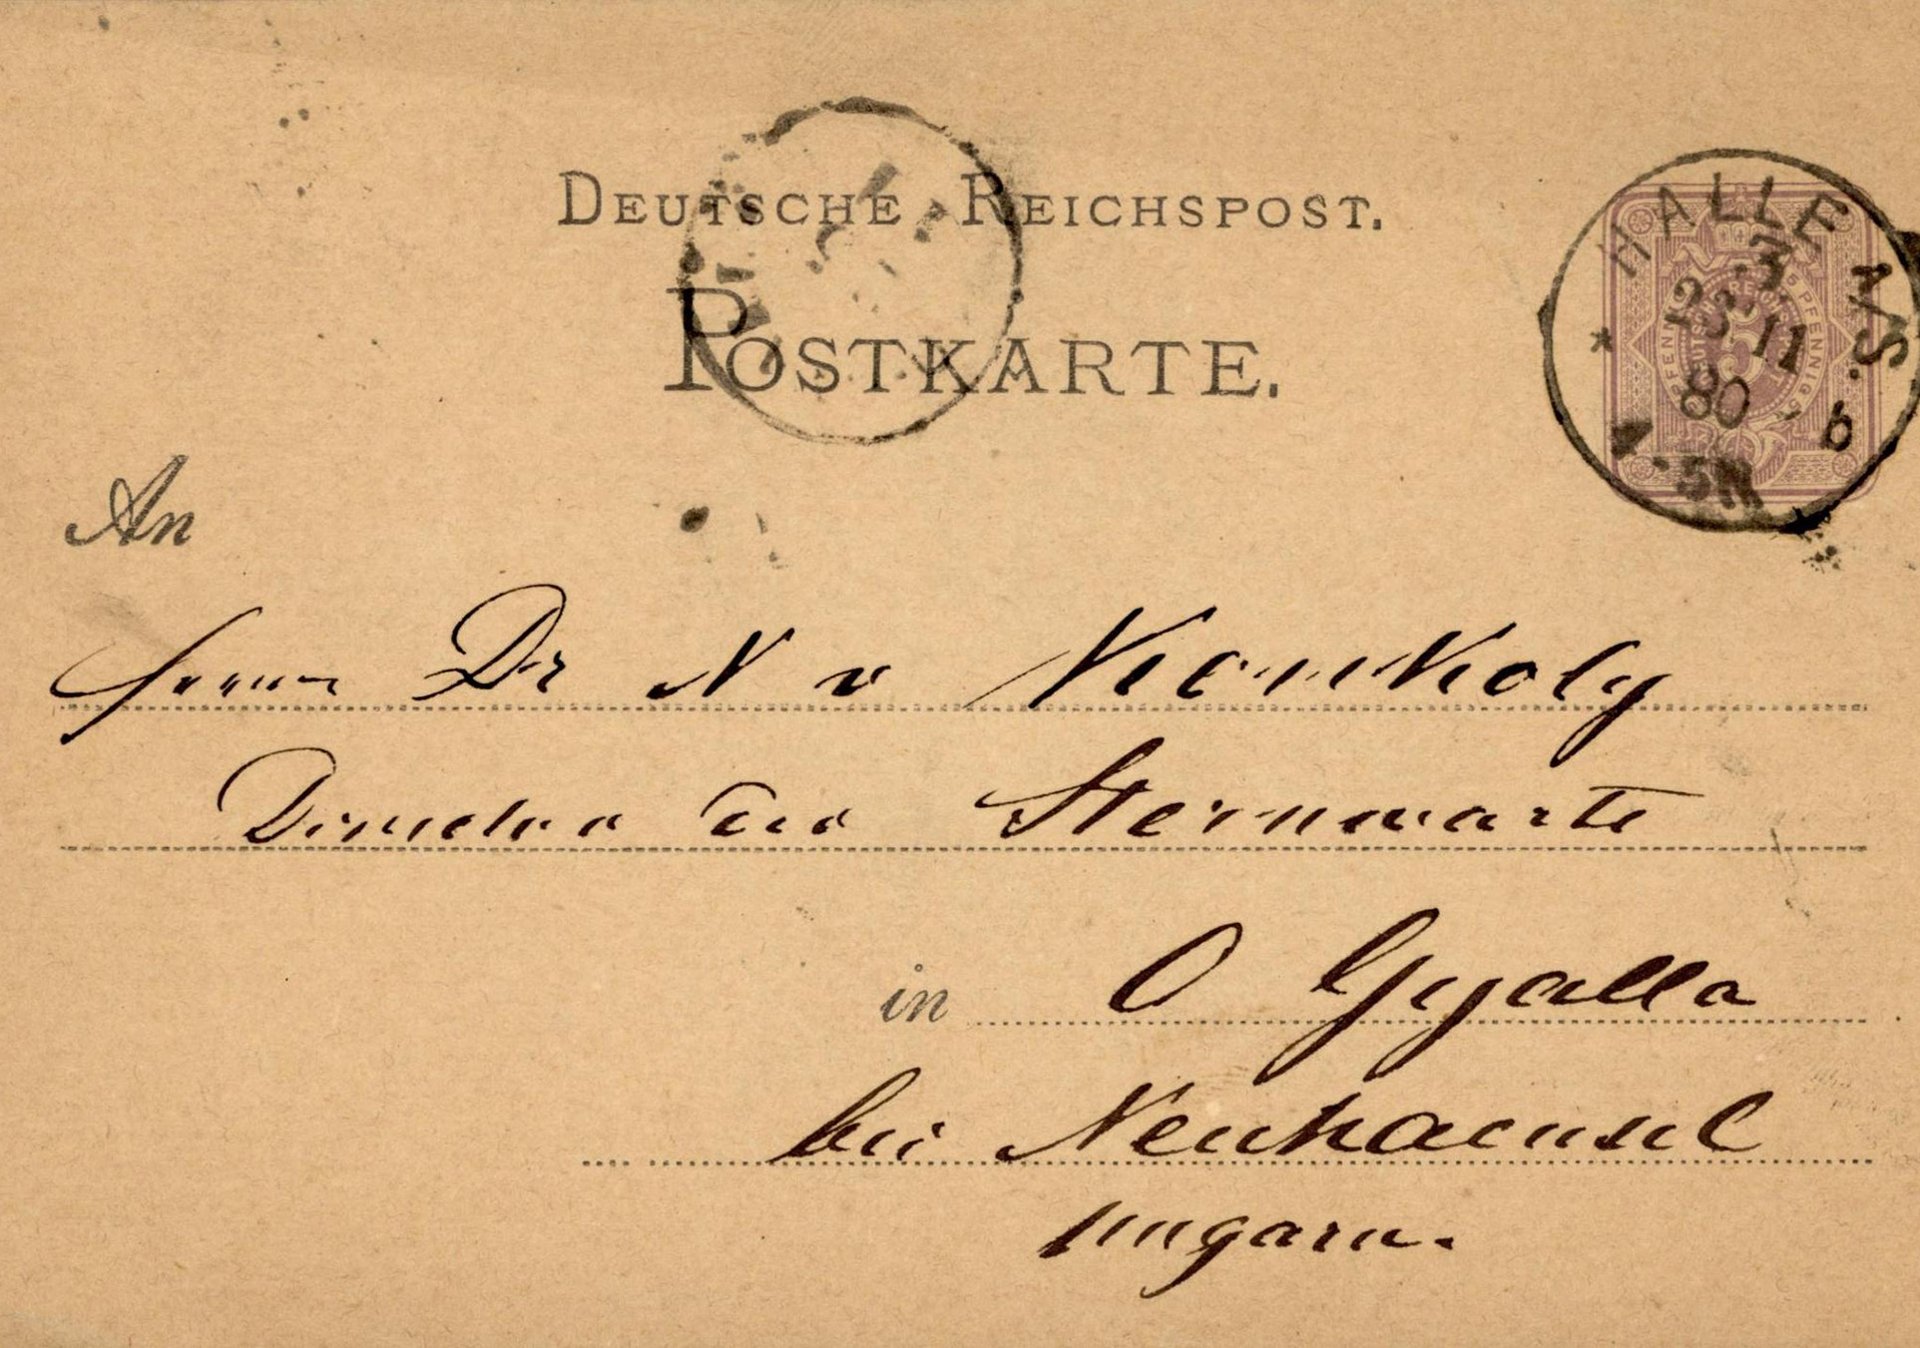 DEUTSCHE REICHSPOST.
POSTKARTE.
HALLE A/S.
23 11
80
b
5 PFENNIG
An
Herrn Dr N v Konkoly
Director der Sternwarte
in O Gyalla
bei Neuhaeusel
Ungarn.